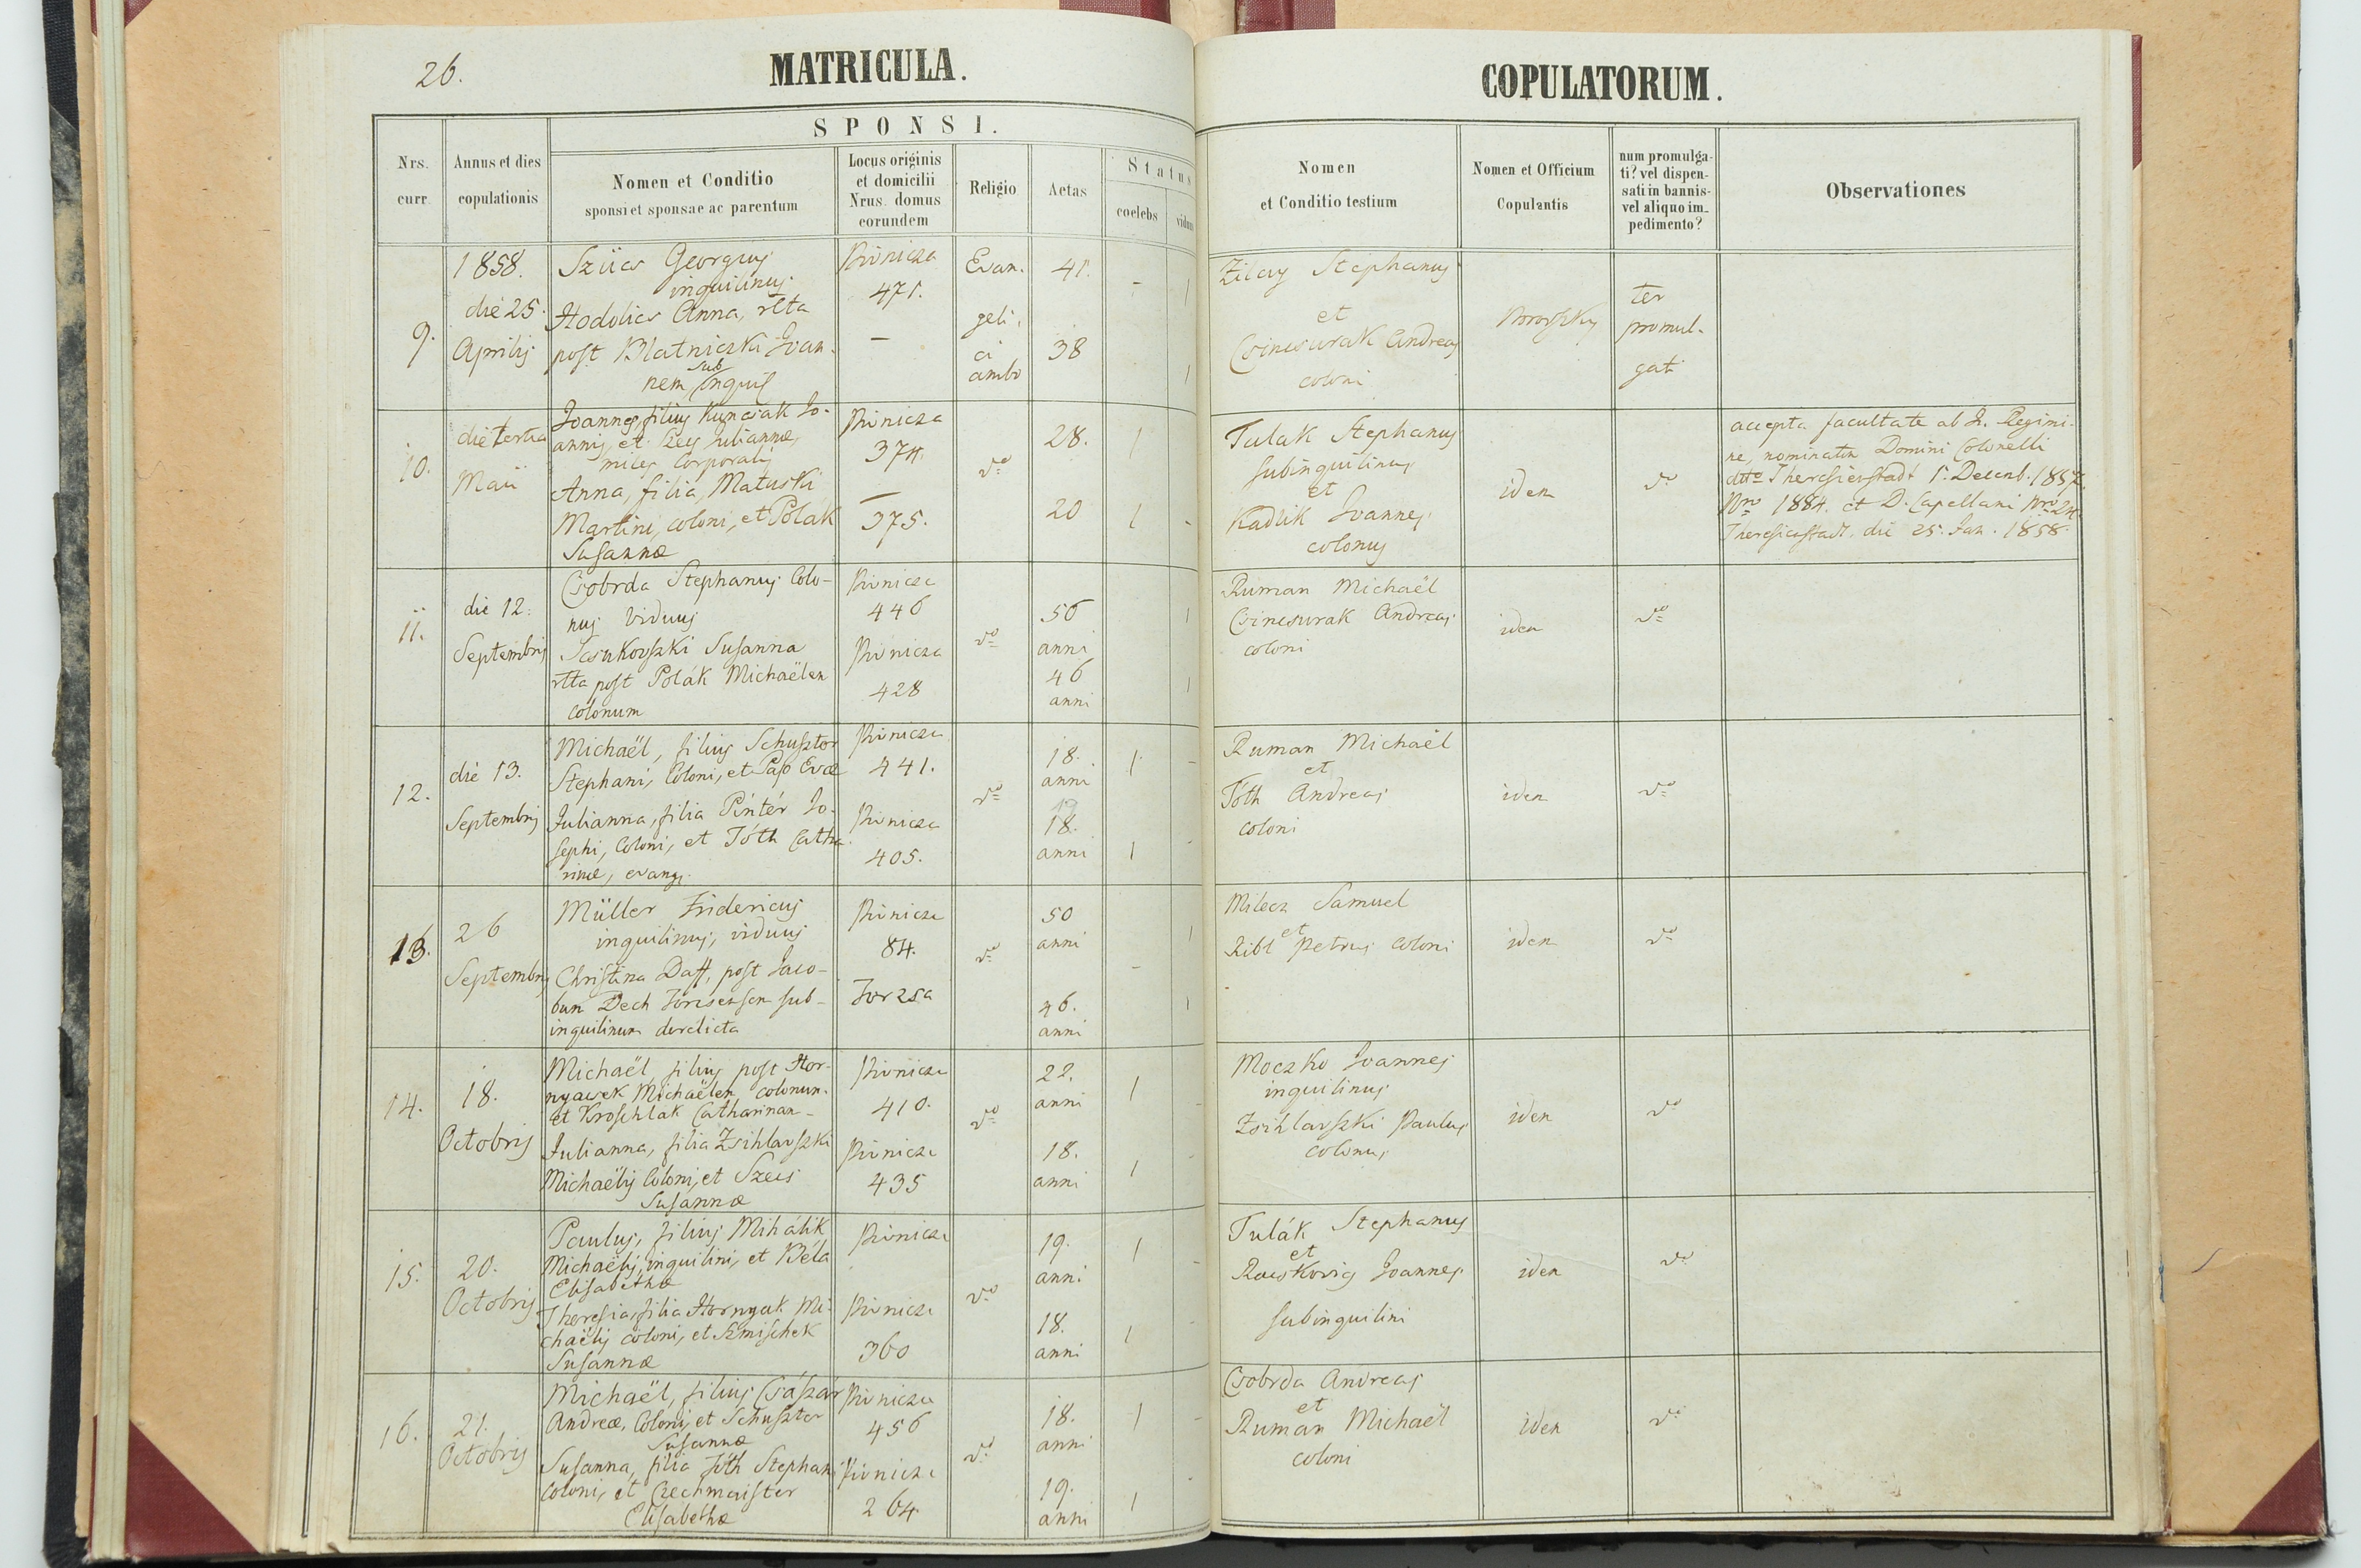 26.
MATRICULA.
SPONSI.
Nrs.
curr.
Annus et dies
copulationis
Nomen et Conditio
sponsi et sponsae ac parentum
Locus originis
et domicilii
Nrus. domus
eorundem
Religio
Aetas
Status
coelebs
vidui
9.
1858.
die 25.
Aprilis
Szücs Georgius
inquilinus
Hodolics Anna, rlta
post Blatniczki Joan-
sub
nem, inquil
Pivnicza
471.
—
Evan-
geli-
ci
ambo
41.
38
-
1
1
10.
die tertia
Maii
Joannes, filius Kuncsak Jo-
annis, et Szey Julianna,
miles Corporalis
Anna, filia Matuski
Martini, coloni, et Polák
Susannæ
Pivnicza
374.
—
375.
do
28.
20
1
1
-
11.
die 12.
Septembris
Csobrda Stephanus Colo-
nus viduus
Susanna
rlta post Polák Michaëlem
colonum
Pivnicza
446
Pivnicza
428
do
56
anni
46
anni
1
1
12.
die 13.
Septembris
Michaël, filius Schusztor
Stephani, Coloni, et Pap Evæ
Julianna, filia Pintér Jo-
sephi, Coloni, et Tóth Catha-
rinæ, evang.
Pivnicza
441.
Pivnicza
405.
do
18.
anni
18.
anni
1
-
1
-
13.
26
Septembris
Müller Fridericus
inquilinus, viduus
Christina Daff, post Jaco-
bum Dech Torzsensem sub-
inquilinum derelicta
Pivnicza
84.
Torzsa
do
50
anni
46.
anni
-
1
1
14.
18.
Octobris
Michaël, filius post Hor-
nyacsek Michaëlem colonum
et Kroschlak Catharinam-
Julianna, filia Zsihlavszki
Michaëlis Coloni, et Szecs
Susannæ
Pivnicza
410.
Pivnicza
435
do
22.
anni
18.
anni
1
-
1
-
15.
20.
Octobris
Paulus, filius Mihálik
Michaëlis, inquilini, et Béla
Elisabethæ
Theresia, filia Hornyak Mi-
chaëlis coloni, et Kmischek
Susannæ
Pivnicza
Pivnicza
360
do
19.
anni
18.
anni
1
-
1
-
16.
21.
Octobris
Michaël, filius Császár
Andreæ, Coloni, et Schuszter
Susannæ
Susanna, filia Tóth Stephani
Coloni, et Czechmeister
Elisabethæ
Pivnicza
456
Pivnicza
264.
do
18.
anni
19.
anni
1
-
1
-
COPULATORUM.
Nomen
et Conditio testium
Nomen et Officium
Copulantis
num promulga-
ti? vel dispen-
sati in bannis-
vel aliquo im-
pedimento?
Observationes
Zilay Stephanus
et
Csincsurak Andreas
coloni
ter
promul-
gati
Tulak Stephanus
subinquilinus
et
Kadlik Joannes
colonus
idem
do
accepta facultate ab I. Regimi-
ne, nominatim Domini Colonelli
dtto Theresienstadt 1. Decemb. 1857.
Nro 1884. et D. Capellani Nro 24
Theresienstadt, die 25. Jan. 1858.
Ruman Michaël
Csincsurak Andreas
coloni
idem
do
Ruman Michaël
et
Tóth Andreas
coloni
idem
do
Milecz Samuel
et
Ribl Petrus coloni
idem
do
Moczko Joannes
inquilinus
Zsihlavszki Paulus
colonus
idem
do
Tulák Stephanus
et
Racskovics Joannes
subinquilini
idem
do
Csobrda Andreas
et
Ruman Michaël
coloni
idem
do